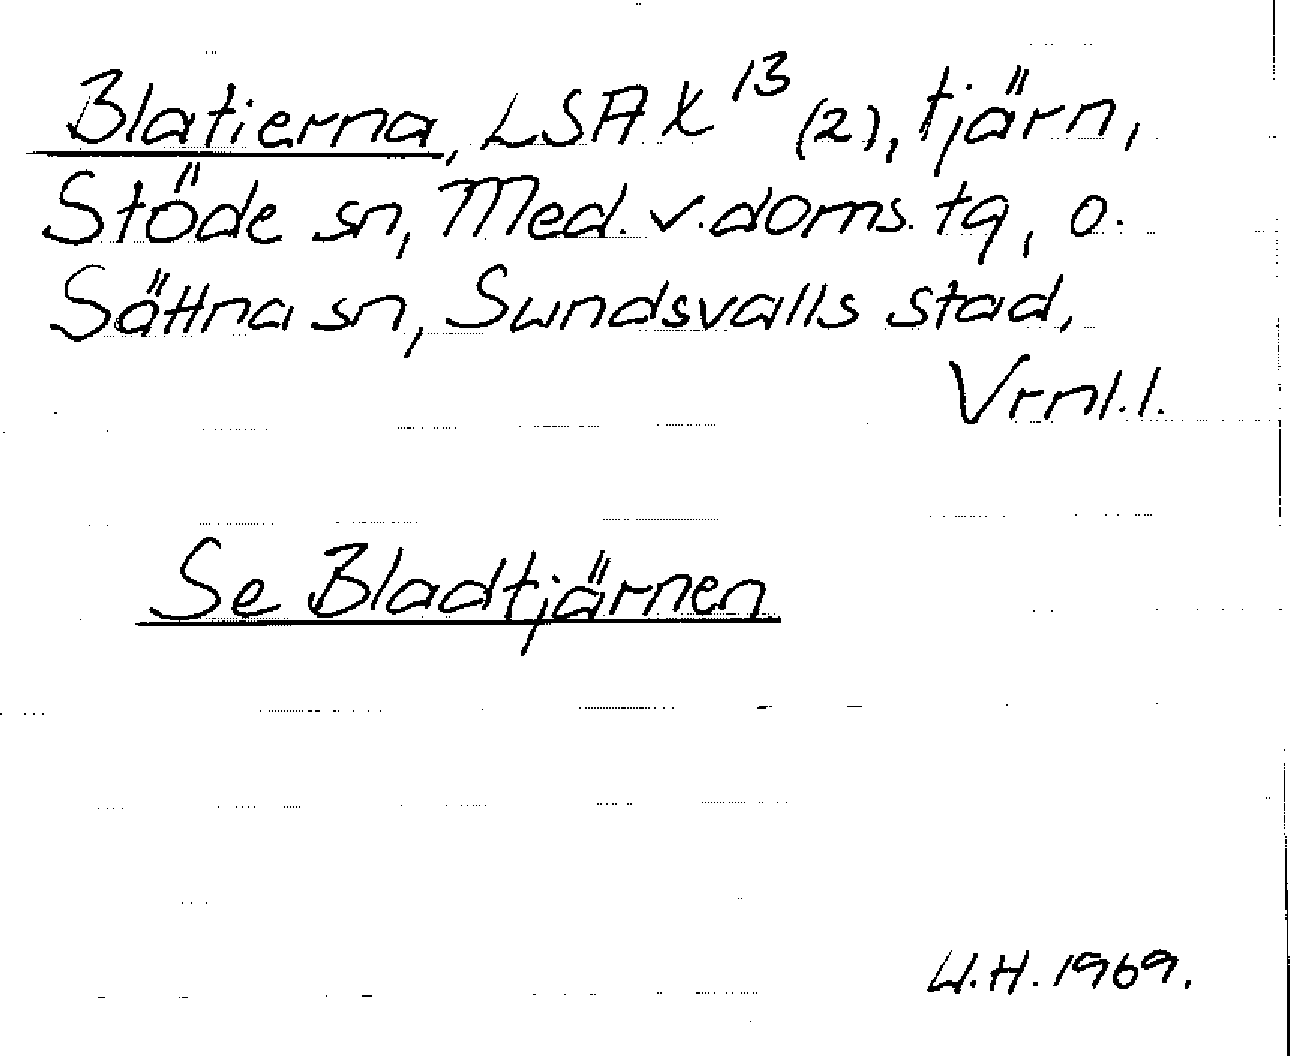 Blatierna, LSA X 13 (2), tjärn,
Stöde sn, Med. v. doms. tg, o.
Sättna sn, Sundsvalls stad,
Vrnl. l.
Se Bladtjärnen
U.H. 1969.